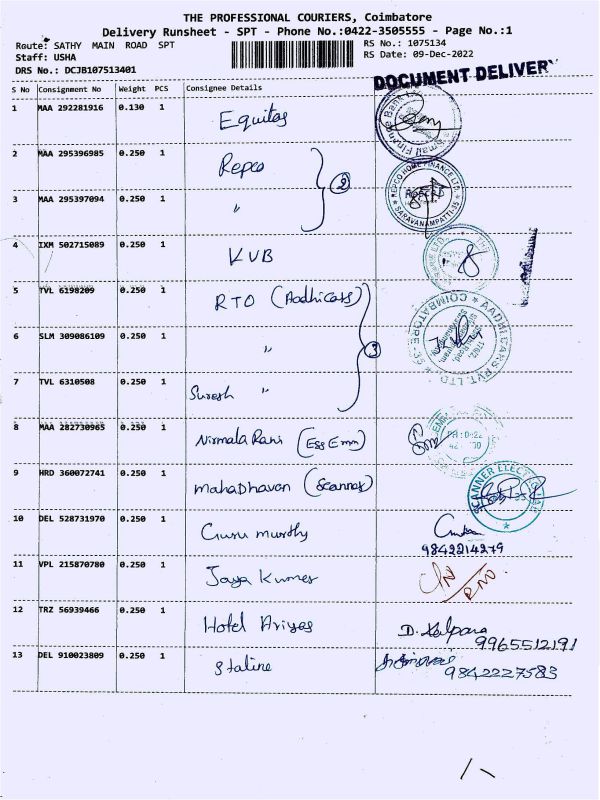 THE PROFESSIONAL COURIERS, Coimbatore
Delivery Runsheet - SPT - Phone No.:0422-3505555 - Page No.:1
Route: SATHY MAIN ROAD SPT
RS No.: 1075134
Staff: USHA
RS Date: 09-Dec-2022
DRS No.: DCJB107513401
DOCUMENT DELIVERY
S No Consignment No Weight PCS Consignee Details
1 MAA 292281916 0.130 1 Equitas
2 MAA 295396985 0.250 1 Repco
2
REPCO HOME FINANCE LTD.
SARAVANAMPATTI-35
3 MAA 295397094 0.250 1 "
4 IXM 502715089 0.250 1 KVB
5 TVL 6198209 0.250 1 RTO (Aadhicars)
AADHI CARS PVT. LTD
COIMBATORE-35
6 SLM 309086109 0.250 1 "
3
7 TVL 6310508 0.250 1 Suresh "
8 MAA 282730965 0.250 1 Nirmala Rani (Ess Emm)
9 HRD 360072741 0.250 1 Mahadhavan (Scanner)
SCANNER ELECT
10 DEL 528731970 0.250 1 Guru murthy
9842214279
11 VPL 215870780 0.250 1 Jaya Kumar
12 TRZ 56939466 0.250 1 Hotel Ariyas D. Kalpana
9965512191
13 DEL 910023809 0.250 1 Staline
9842227583